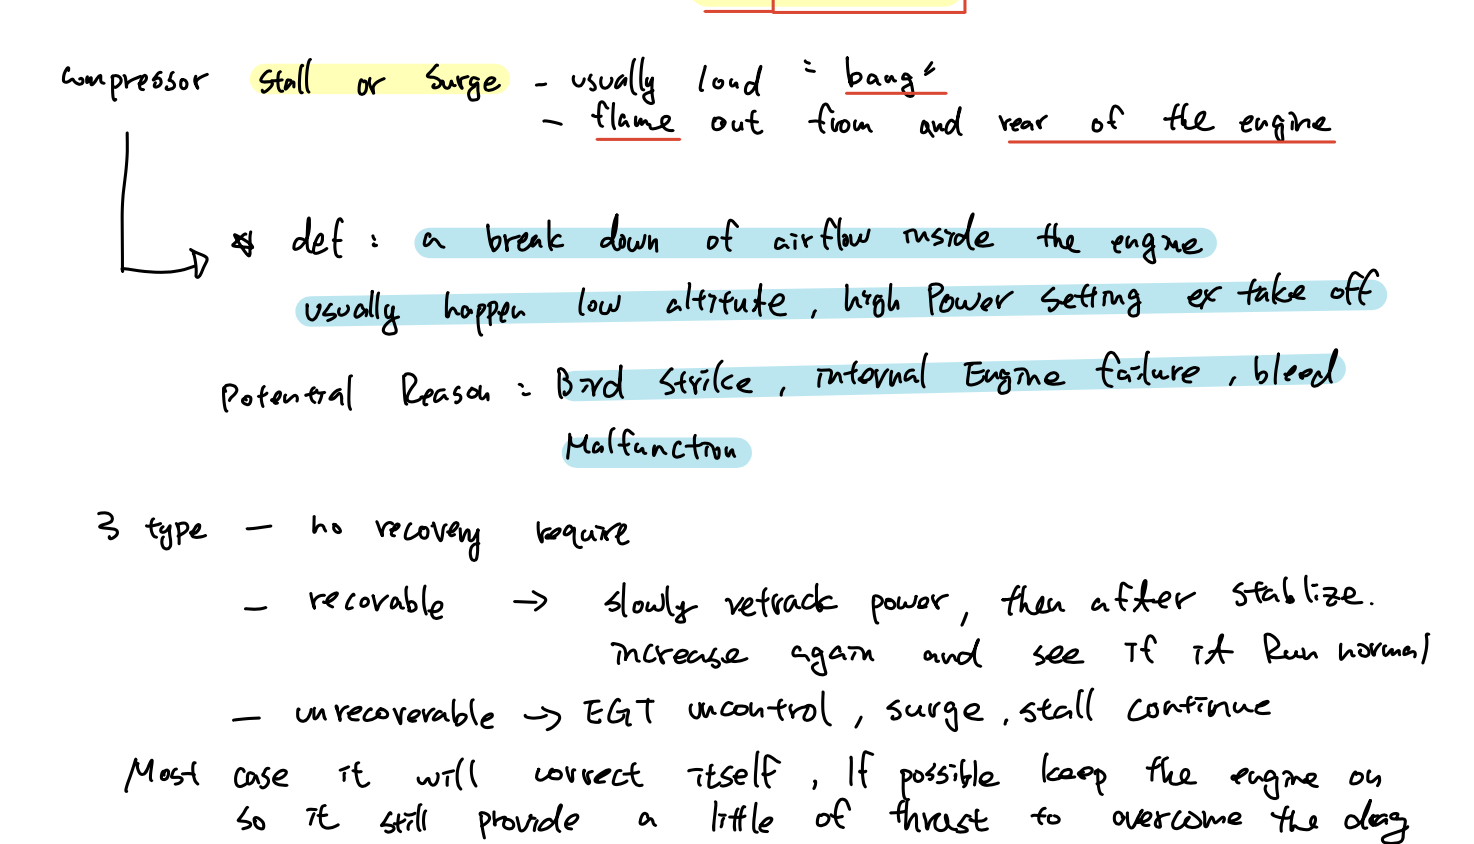 compressor stall or surge - usually loud "bang"
- flame out from and rear of the engine
* def : a break down of airflow inside the engine
usually happen low altitute , high Power setting ex take off
Potential Reason : Bird strike , internal Engine failure , bleed
Malfunction
3 type - no recovery require
- recorable → slowly retrack power, then after stablize.
increase again and see if it Run normal
- unrecoverable → EGT uncontrol , surge , stall continue
Most case it will correct itself , If possible keep the engine on
so it still provide a little of thrust to overcome the drag